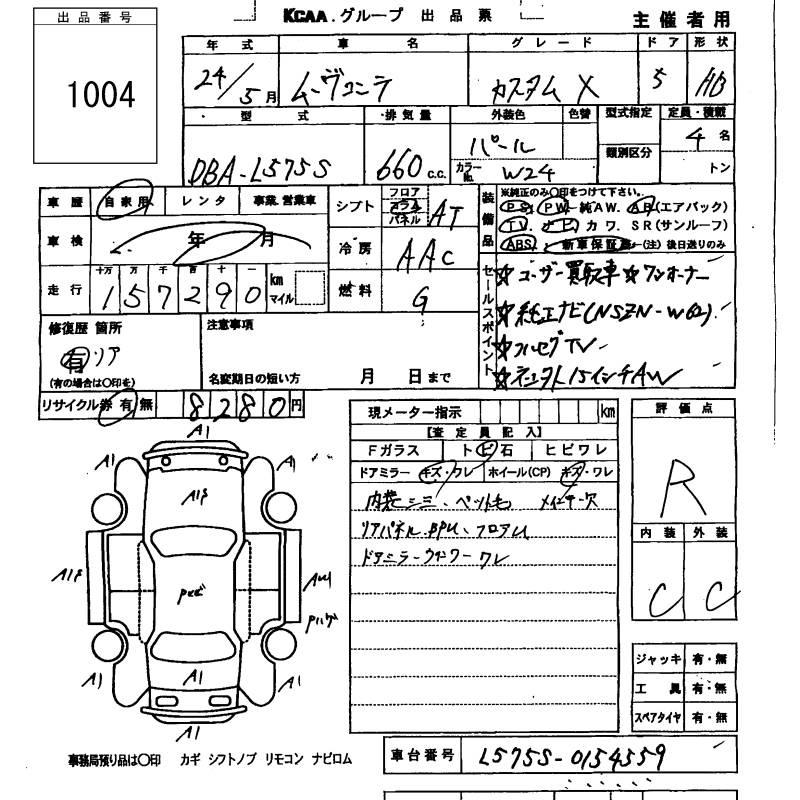 出品番号
1004
KCAA.グループ 出品票
主催者用
年式 車名 グレード ドア 形状
24/5月 ムーヴコンテ カスタム X 5 HB
型式 排気量 外装色 色替 型式指定 定員・積載
DBA-L575S 660c.c. パール 類別区分 4名
カラーNo. W24 トン
車歴 自家用 レンタ 事業.営業車
シフト フロア コラム パネル AT
装備品 ※純正のみ○印をつけて下さい。
PS PW 純AW. AB(エアバック)
TV. ナビ カワ. SR(サンルーフ)
ABS. 新車保証書(注) 後日送りのみ
車検 年 月
冷房 AAC
走行 十万 万 千 百 十 一
157290 km マイル
燃料 G
セールスポイント
☆ユーザー買取車☆ワンオーナー
☆純正ナビ(NSZN-W62).
☆フルセグTV
☆15インチAW
修復歴 箇所
有 リア
(有の場合は○印を)
注意事項
名変期日の短い方 月 日まで
リサイクル券 有 無 8280円
現メーター指示 km
【査定員記入】
Fガラス トビ石 ヒビワレ
ドアミラー キズ・ワレ ホイール(CP) キズ・ワレ
内装シミ、ペット毛
リアパネル
ドアミラーウインカーワレ
評価点
R
内装 外装
C C
A1
A1 A1
A1
A1 A1
A1
A1
ジャッキ 有・無
工具 有・無
スペアタイヤ 有・無
事務局預り品は○印 カギ シフトノブ リモコン ナビロム
車台番号 L575S-0154559